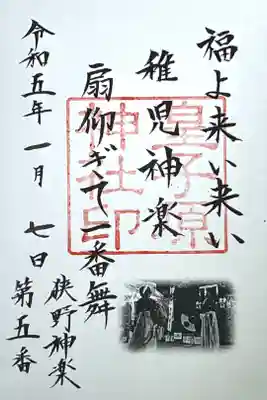 福よ来い来い
稚児神楽
扇仰ぎて一番舞
令和五年一月七日
狭野神楽
第五番
皇子原神社印